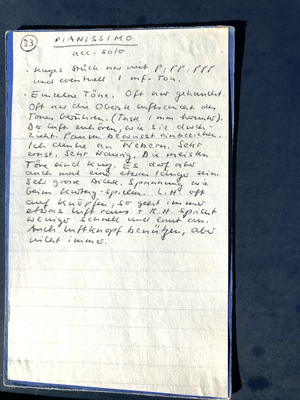 33
PIANISSIMO
acc. solo
· Kurzes Stück nur mit p, pp, ppp
und eventuell 1 mf-Ton.
· Einzelne Töne. Oft nur gehaucht.
Oft nur die Oberste Luftschicht des
Tones berühren. (Taste 1 mm).
Der Luft zuhören, wie sie
Pausen bewusst einbeziehen.
Ich denke an Webern. Sehr
ernst. Sehr. Die meisten
Töne sind kurz. Es darf aber
auch mal eine etwas länger sein.
Sehr grosse Dichte. Spannung wie
beim-spielen. L.H. oft
auf Knöpfen, so geht immer
etwas Luft raus + R.H. spricht
weniger schnell und laut an.
Auch Luftknopf benützen, aber
nicht immer.